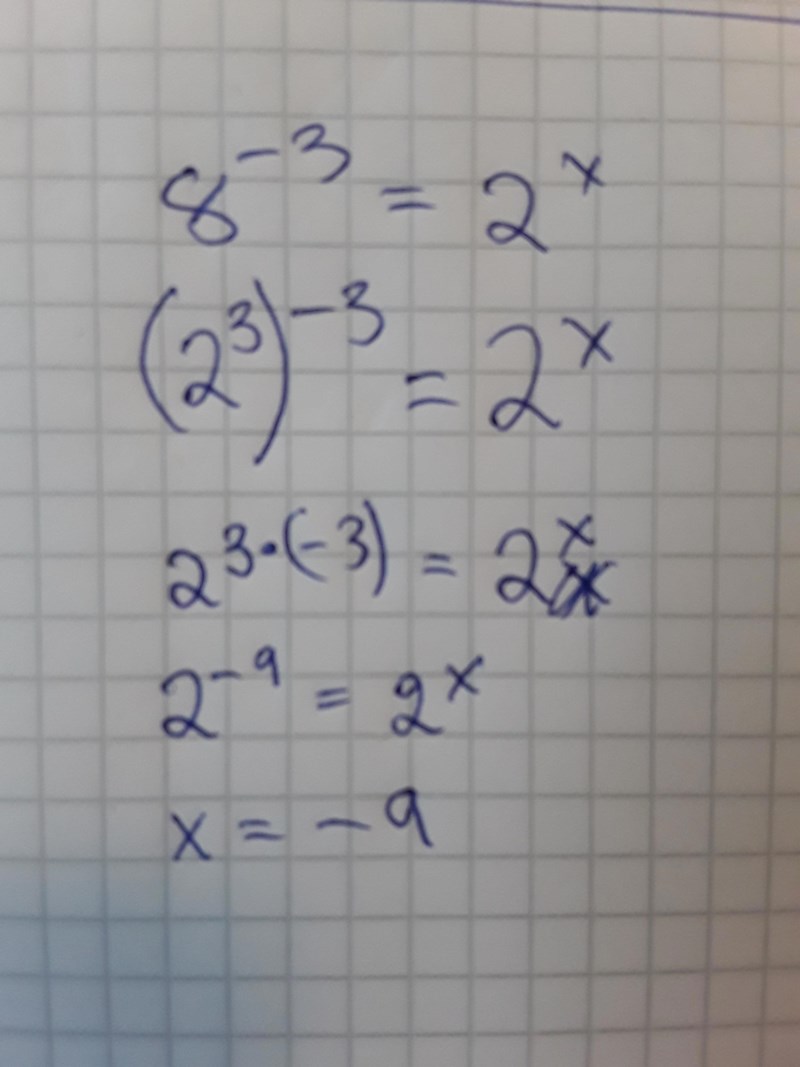 8⁻³ = 2ˣ
(2³)⁻³ = 2ˣ
2³·⁽⁻³⁾ = 2ˣ
2⁻⁹ = 2ˣ
x = -9